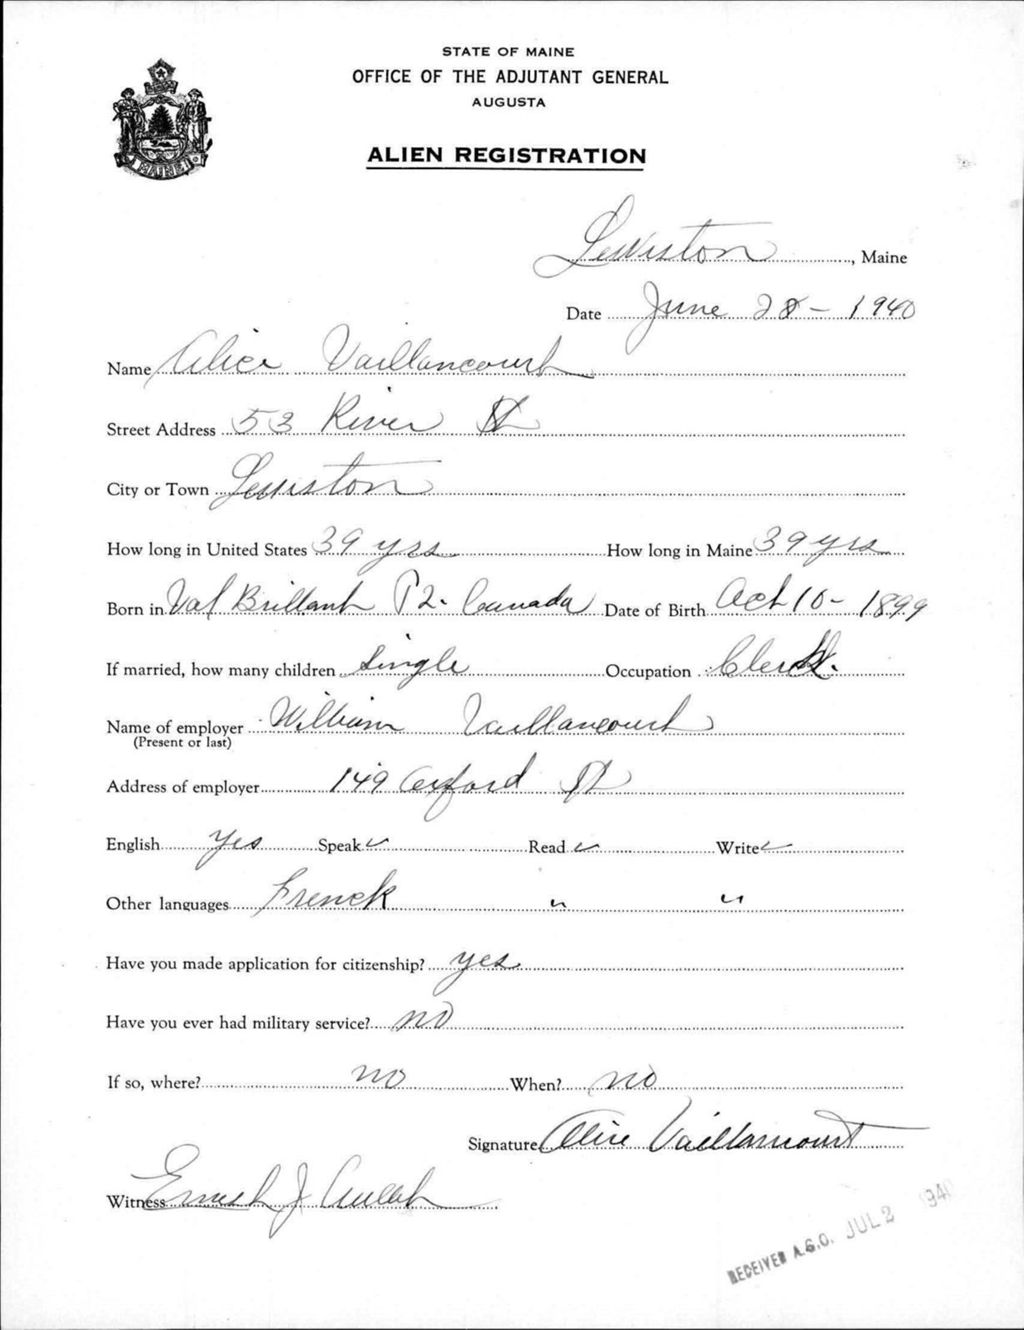 STATE OF MAINE
OFFICE OF THE ADJUTANT GENERAL
AUGUSTA
ALIEN REGISTRATION
MAINE
Lewiston, Maine
Date June 28 - 1940
Name Alice Vaillancourt
Street Address 53 River St
City or Town Lewiston
How long in United States 39 yrs How long in Maine 39 yrs
Born in Val Brillant P2. Canada Date of Birth Oct 10 - 1899
If married, how many children Single Occupation Clerk.
Name of employer William Vaillancourt
(Present or last)
Address of employer 149 Oxford St
English yes Speak ✓ Read ✓ Write ✓
Other languages French " "
Have you made application for citizenship? yes
Have you ever had military service? no
If so, where? no When? no
Signature Alice Vaillancourt
Witness J
RECEIVED A.G.O. JUL 2 1940